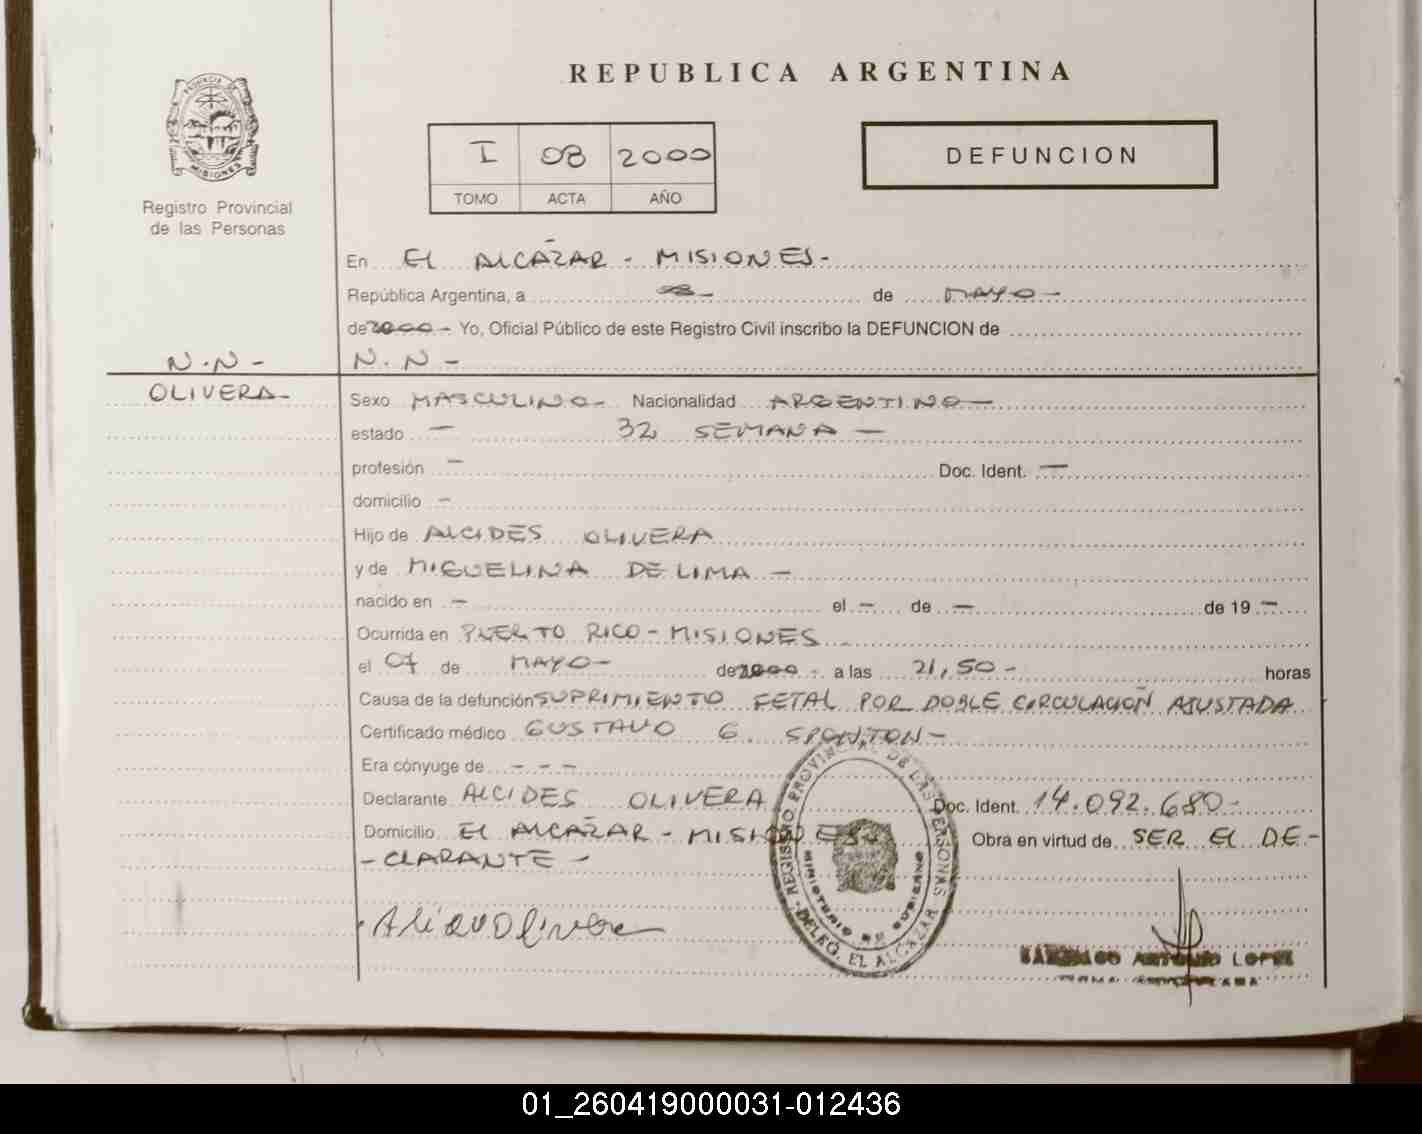 REPUBLICA ARGENTINA
PROVINCIA DE MISIONES
Registro Provincial
de las Personas
I 08 2000
TOMO ACTA AÑO
DEFUNCION
En EL ALCÁZAR - MISIONES-
República Argentina, a 08- de MAYO-
de 2000 - Yo, Oficial Público de este Registro Civil inscribo la DEFUNCION de
N.N- N.N-
OLIVERA-
Sexo MASCULINO- Nacionalidad ARGENTINO-
estado - 32 SEMANA -
profesión - Doc. Ident. -
domicilio -
Hijo de ALCIDES OLIVERA
y de MIGUELINA DE LIMA -
nacido en - el - de - de 19 -
Ocurrida en PUERTO RICO - MISIONES
el 07 de MAYO- de 2000 - a las 21,50- horas
Causa de la defunción SUPRIMIENTO FETAL POR DOBLE CIRCULACIÓN AJUSTADA
Certificado médico GUSTAVO G. SPONTON-
Era cónyuge de - - -
Declarante ALCIDES OLIVERA Doc. Ident. 14.092.680-
Domicilio EL ALCAZAR - MISIONES- Obra en virtud de SER EL DE-
- CLARANTE -
REGISTRO PROVINCIAL DE LAS PERSONAS
MINISTERIO DE GOBIERNO
DELEG. EL ALCAZAR
ANTONIO LOPEZ
01_260419000031-012436